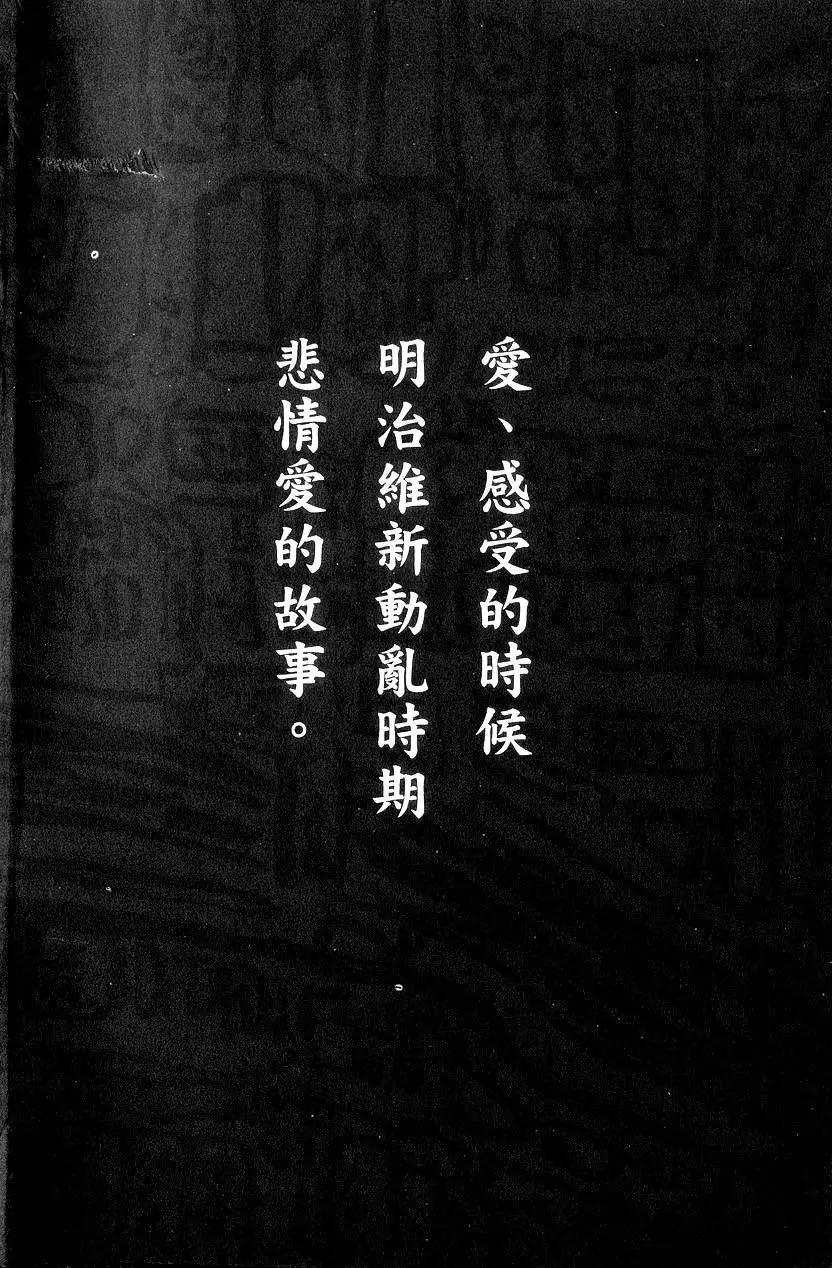 愛、感受的時候
明治維新動亂時期
悲情愛的故事。